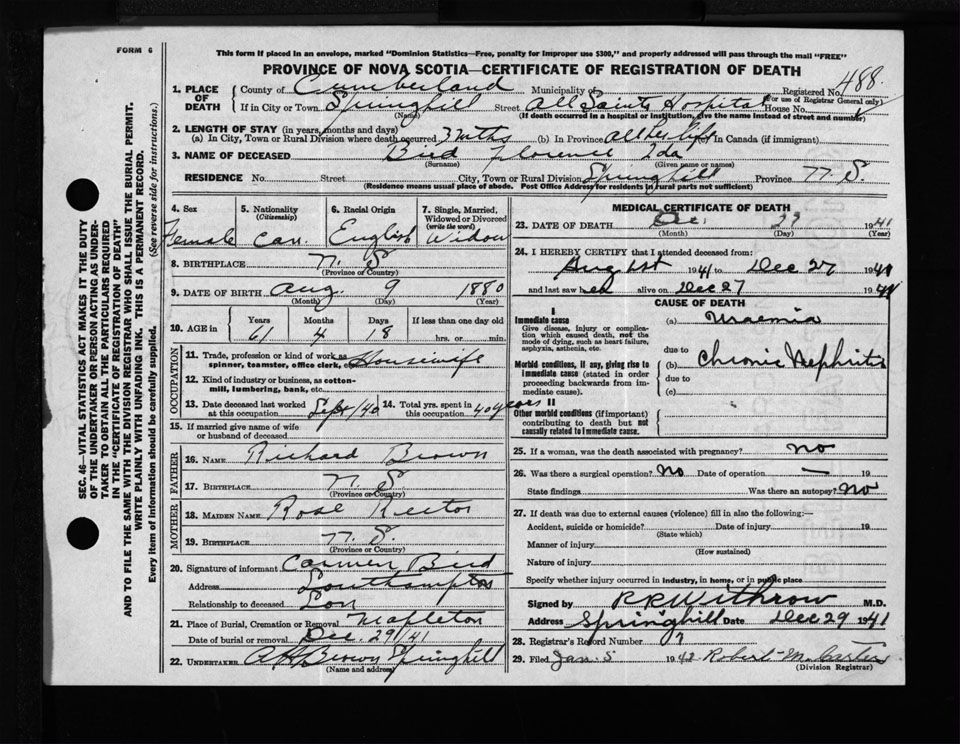 FORM 6
This form if placed in an envelope, marked "Dominion Statistics—Free, penalty for improper use $300," and properly addressed will pass through the mail "FREE"
PROVINCE OF NOVA SCOTIA—CERTIFICATE OF REGISTRATION OF DEATH
SEC. 46—VITAL STATISTICS ACT MAKES IT THE DUTY
OF THE UNDERTAKER OR PERSON ACTING AS UNDER-
TAKER TO OBTAIN ALL THE PARTICULARS REQUIRED
IN THE "CERTIFICATE OF REGISTRATION OF DEATH"
AND TO FILE THE SAME WITH THE DIVISION REGISTRAR WHO SHALL ISSUE THE BURIAL PERMIT.
WRITE PLAINLY WITH UNFADING INK. THIS IS A PERMANENT RECORD.
Every item of information should be carefully supplied. (See reverse side for instructions.)
1. PLACE OF DEATH County of Cumberland Municipality of Registered No. 488
(For use of Registrar General only)
If in City or Town Springhill Street All Saints Hospital House No.
(Name) (If death occurred in a hospital or institution, give the name instead of street and number)
2. LENGTH OF STAY (in years, months and days)
(a) In City, Town or Rural Division where death occurred 3 mths (b) In Province all her life (c) In Canada (if immigrant)
3. NAME OF DECEASED Bird Florence Ida
(Surname) (Given name or names)
RESIDENCE No. Street City, Town or Rural Division Springhill Province N.S.
(Residence means usual place of abode. Post Office Address for residents in rural parts not sufficient)
4. Sex Female
5. Nationality (Citizenship) Can.
6. Racial Origin English
7. Single, Married, Widowed or Divorced (write the word) Widow
8. BIRTHPLACE N.S.
(Province or Country)
9. DATE OF BIRTH Aug. 9 1880
(Month) (Day) (Year)
10. AGE in Years Months Days If less than one day old
61 4 18 hrs. or min.
OCCUPATION
11. Trade, profession or kind of work as spinner, teamster, office clerk, etc. Housewife
12. Kind of industry or business, as cotton-mill, lumbering, bank, etc.
13. Date deceased last worked at this occupation Sept/40 14. Total yrs. spent in this occupation 40 years
15. If married give name of wife or husband of deceased
FATHER
16. NAME Richard Brown
17. BIRTHPLACE N.S.
(Province or Country)
MOTHER
18. MAIDEN NAME Rose Rector
19. BIRTHPLACE N.S.
(Province or Country)
20. Signature of informant Carmen Bird
Address Southampton
Relationship to deceased Son
21. Place of Burial, Cremation or Removal Mapleton
Date of burial or removal Dec. 29/41
22. UNDERTAKER Brown Springhill
(Name and address)
MEDICAL CERTIFICATE OF DEATH
23. DATE OF DEATH Dec. 27 1941
(Month) (Day) (Year)
24. I HEREBY CERTIFY that I attended deceased from:
Aug 1st 1941 to Dec 27 1941
and last saw her alive on Dec 27 1941
CAUSE OF DEATH
I
Immediate cause
Give disease, injury or complication which caused death, not the mode of dying, such as heart failure, asphyxia, asthenia, etc.
(a) Uraemia
due to
Morbid conditions, if any, giving rise to immediate cause (stated in order proceeding backwards from immediate cause).
(b) Chronic Nephritis
due to
(c)
II
Other morbid conditions (if important) contributing to death but not causally related to immediate cause.
25. If a woman, was the death associated with pregnancy? No
26. Was there a surgical operation? No Date of operation — 19
State findings Was there an autopsy? No
27. If death was due to external causes (violence) fill in also the following:—
Accident, suicide or homicide? Date of injury 19
(State which)
Manner of injury
(How sustained)
Nature of injury
Specify whether injury occurred in industry, in home, or in public place
Signed by R R Withrow M.D.
Address Springhill Date Dec 29 1941
28. Registrar's Record Number
29. Filed Jan. 5 1942 Robert M. Carter
(Division Registrar)